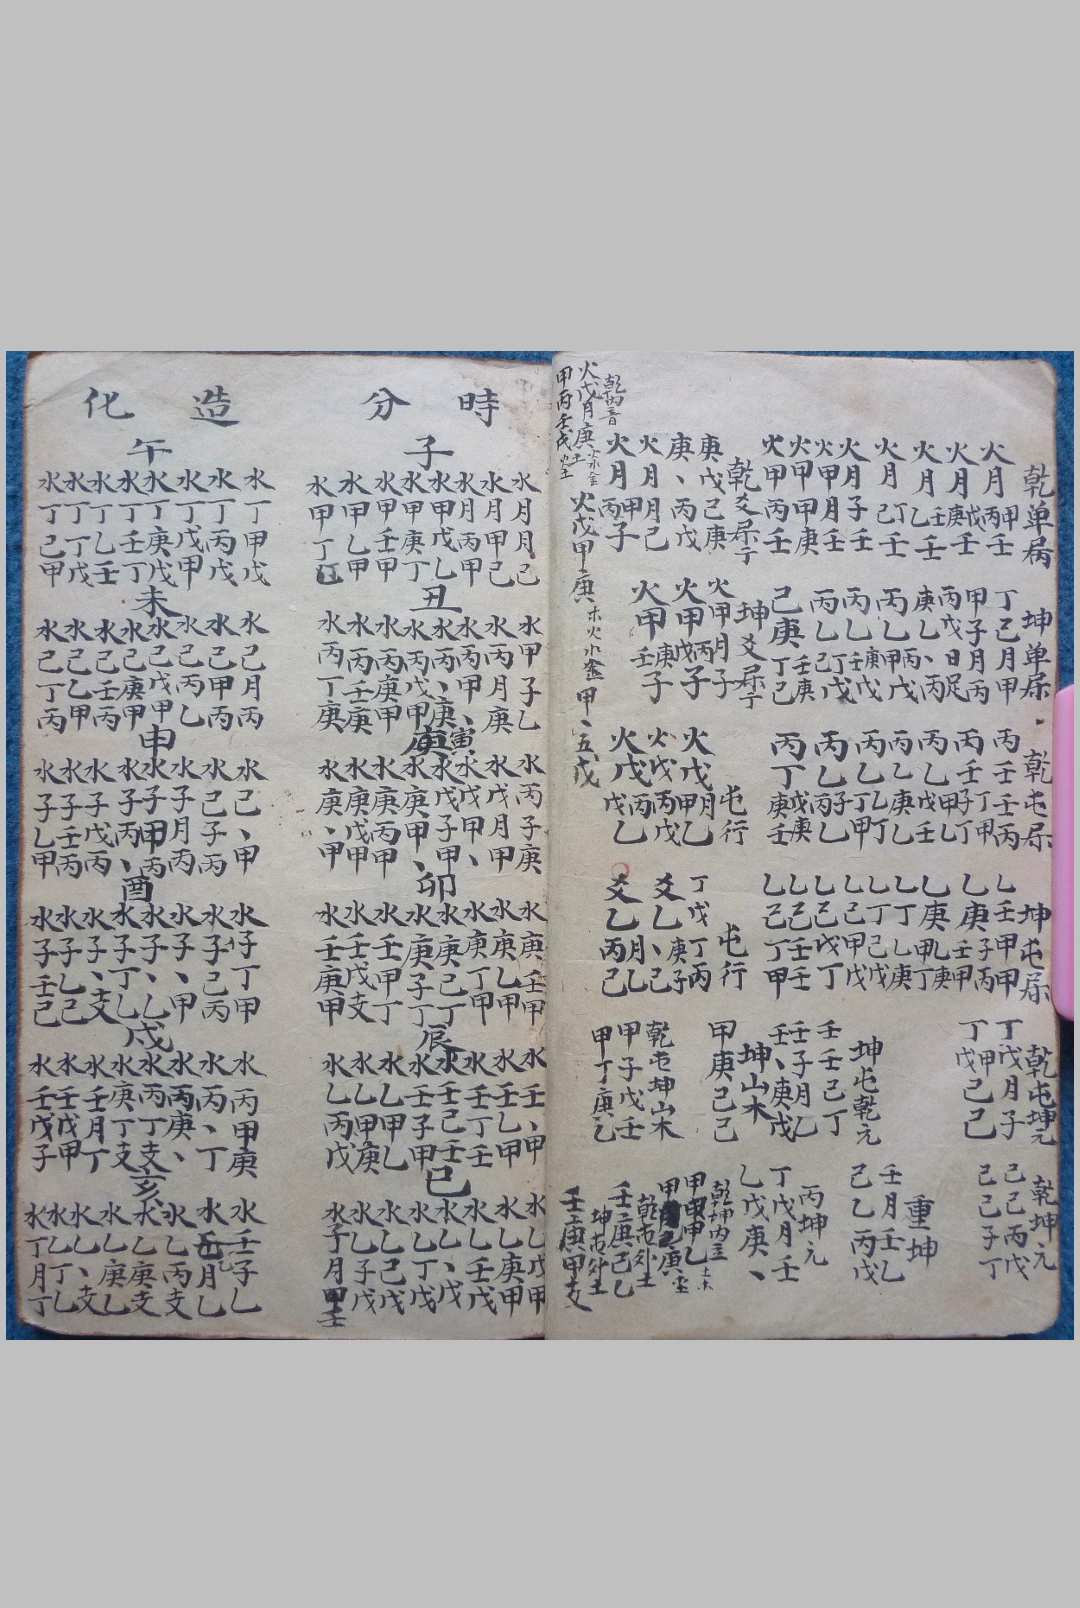 乾单病
火月丙甲壬
火月庚戊壬
火月乙壬壬
火月己丁壬
火月子壬
火甲月壬
火甲甲庚
火甲丙壬
坤单屌
丁己月甲
甲子月丙
丙戊日足
庚乙、丙
丙乙甲丙戊
丙乙壬庚戊
丙乙己丁戊
己庚丁壬己庚
乾屯屌
丙壬壬丙
丙壬子丁甲丁
丙乙戊甲壬乙
丙乙庚乙
丙乙乙丁甲丁
丙乙丙子乙
丙丁庚戊壬庚
坤屯屌
乙壬甲甲
乙庚壬子甲丙
乙丁乙庚
乙丁己戊
乙己甲戊
乙己戊丁
乙己壬壬
乙己丁甲
乾屯坤元
丁戊月子
丁戊甲己己
坤屯乾元
壬壬己丁
壬子月乙
壬、庚戊
坤山木
甲庚己己
乾坤元
己己丙戊
己己子丁
重坤
壬月壬乙
己乙丙戊
丙坤元
丁戊月壬
乙戊庚、
乾爻屌于
庚戊己庚
庚、丙戊
火月月己
火月丙甲子
坤爻屌于
火甲月子
火甲戊丙子
火甲壬庚子
屯行
火戊甲月乙
火戊丙戊
火戊戊丙乙
屯行
丁戊丁丙
爻乙、庚己子
爻乙丙月己乙
乾屯坤山木
甲子戊壬
甲丁庚乙
乾坤内
甲甲甲乙
乾屯外土
壬壬庚己乙
坤屯外土
壬庚甲支
火戊月庚
甲丙壬戊
火戊甲庚木火水金甲、五戊
時分造化
子
水月月己
水月甲己
水月丙甲
水甲戊乙
水甲庚丁
水甲壬甲
水甲乙甲
水甲丁
丑
水甲子乙
水丙月庚
水丙甲、
水丙、庚
水丙戊甲
水丙庚甲
水丙壬庚
水丙丁庚
寅
水丙子庚
水戊月甲
水戊甲、
水戊子甲
水庚甲、
水庚丙甲
水庚戊甲
水庚、甲
卯
水庚壬甲
水庚乙甲
水庚丁甲
水庚己丁
水庚子丁
水壬甲丁
水壬戊支
水壬庚甲
辰
水壬、甲
水壬乙甲
水壬丁壬
水壬己壬
水壬子甲
水乙甲乙
水乙甲庚
水乙丙戊
巳
水乙戊甲
水乙庚甲
水乙壬戊
水乙、戊
水乙丁戊
水乙己戊
水乙子戊
水子月甲壬
午
水丁甲戊
水丁丙戊
水丁戊甲
水丁庚戊
水丁壬丁
水丁乙壬
水丁丁戊
水丁己甲
未
水己月丙
水己甲丙
水己丙乙
水己戊甲
水己庚甲
水己壬丙
水己乙甲
水己丁丙
申
水己、甲
水己子丙
水子月丙
水子甲丙
水子丙、
水子戊丙
水子壬丙
水子乙甲
酉
水子丁甲
水子己丙
水子、甲
水子、乙
水子丁乙
水子、支
水子乙己
水子壬己
戌
水丙甲庚
水丙、丁
水丙庚、
水丙丁支
水庚丁支
水壬月丁
水壬戊甲
水壬戊子
亥
水壬子乙
水月乙
水乙丙支
水乙庚支
水乙庚乙
水乙、支
水乙丁乙
水丁月丁